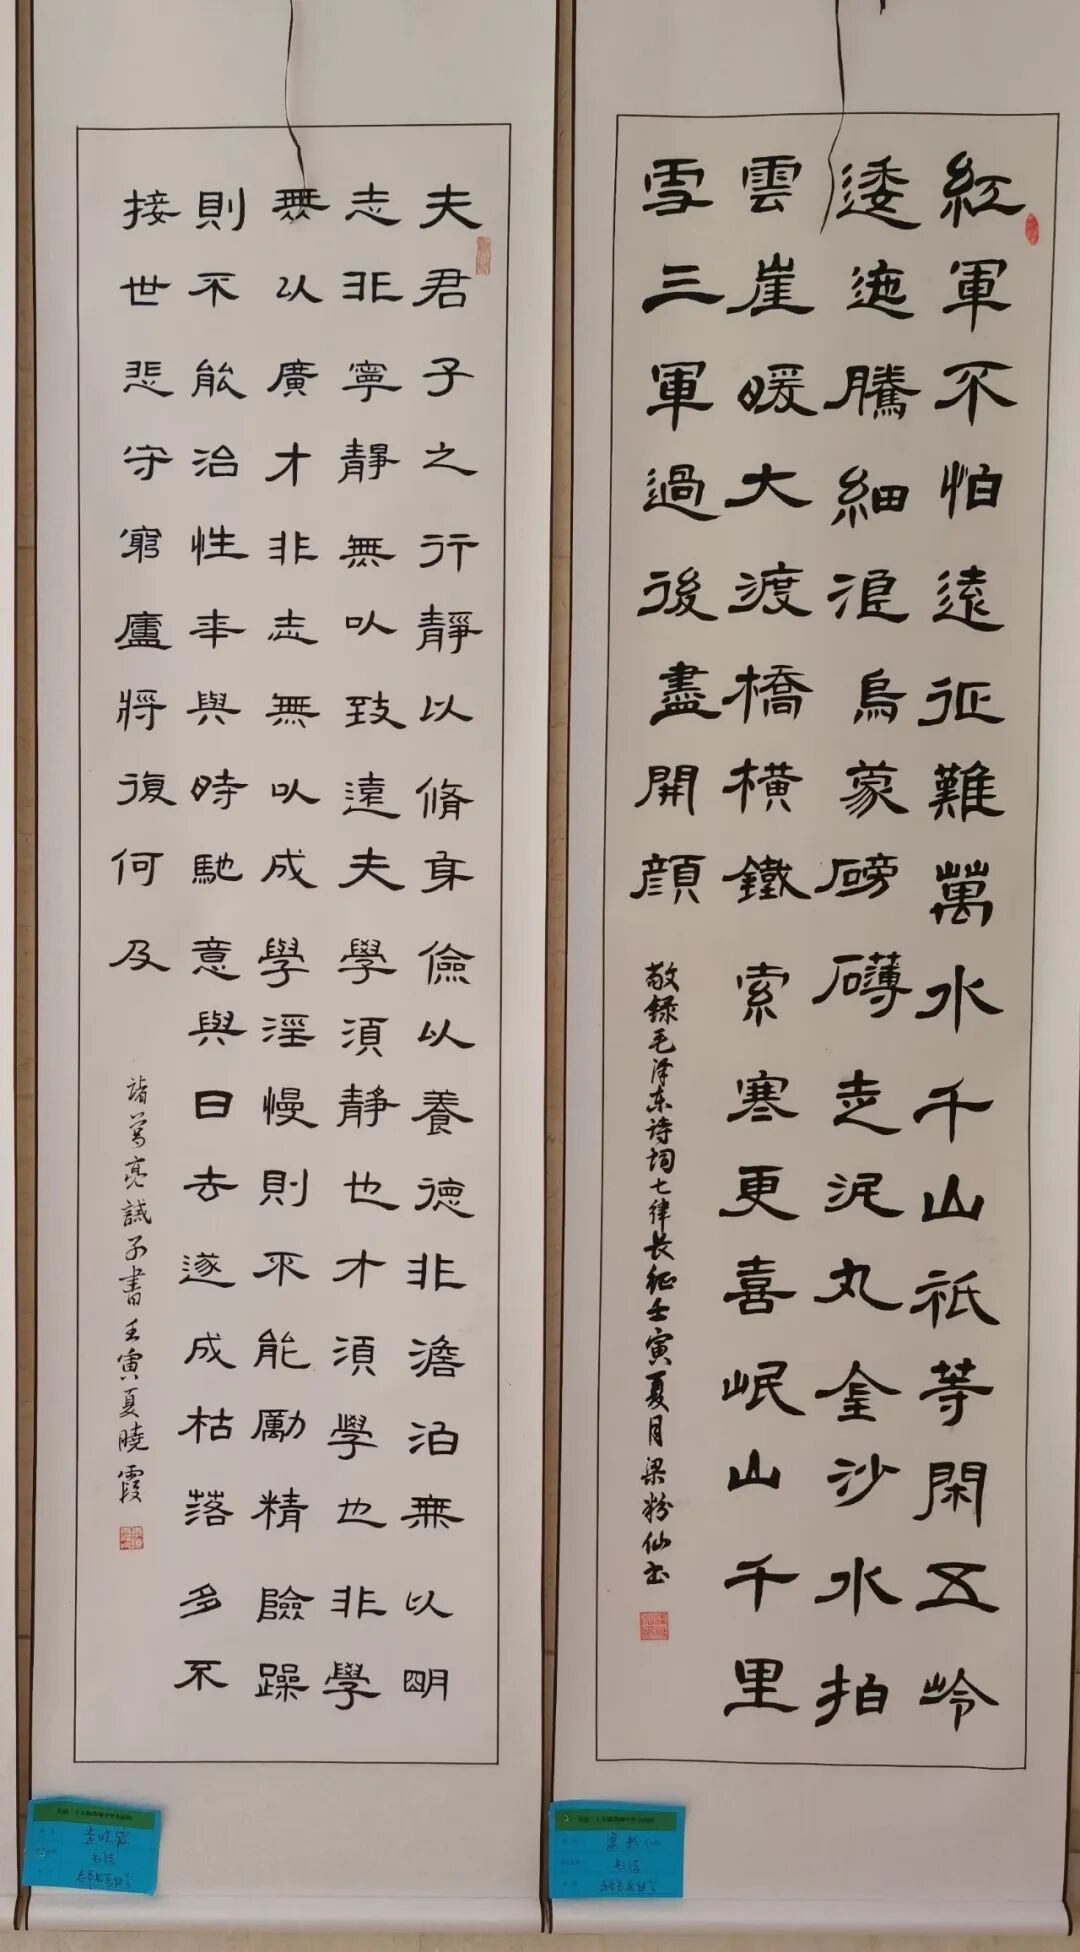 紅軍不怕遠征難萬水千山祇等閑五岭
逶迤騰細浪烏蒙磅礴走泥丸金沙水拍
雲崖暖大渡橋橫鐵索寒更喜岷山千里
雪三軍過後盡開顔
敬録毛泽东诗词七律长征壬寅夏月梁粉仙书
夫君子之行靜以脩身儉以養德非澹泊無以明
志非寧靜無以致遠夫學須靜也才須學也非學
無以廣才非志無以成學淫慢則不能勵精險躁
則不能治性年與時馳意與日去遂成枯落多不
接世悲守窮廬將復何及
諸葛亮誡子書壬寅夏曉霞
李晓霞
书法
梁粉仙
书法